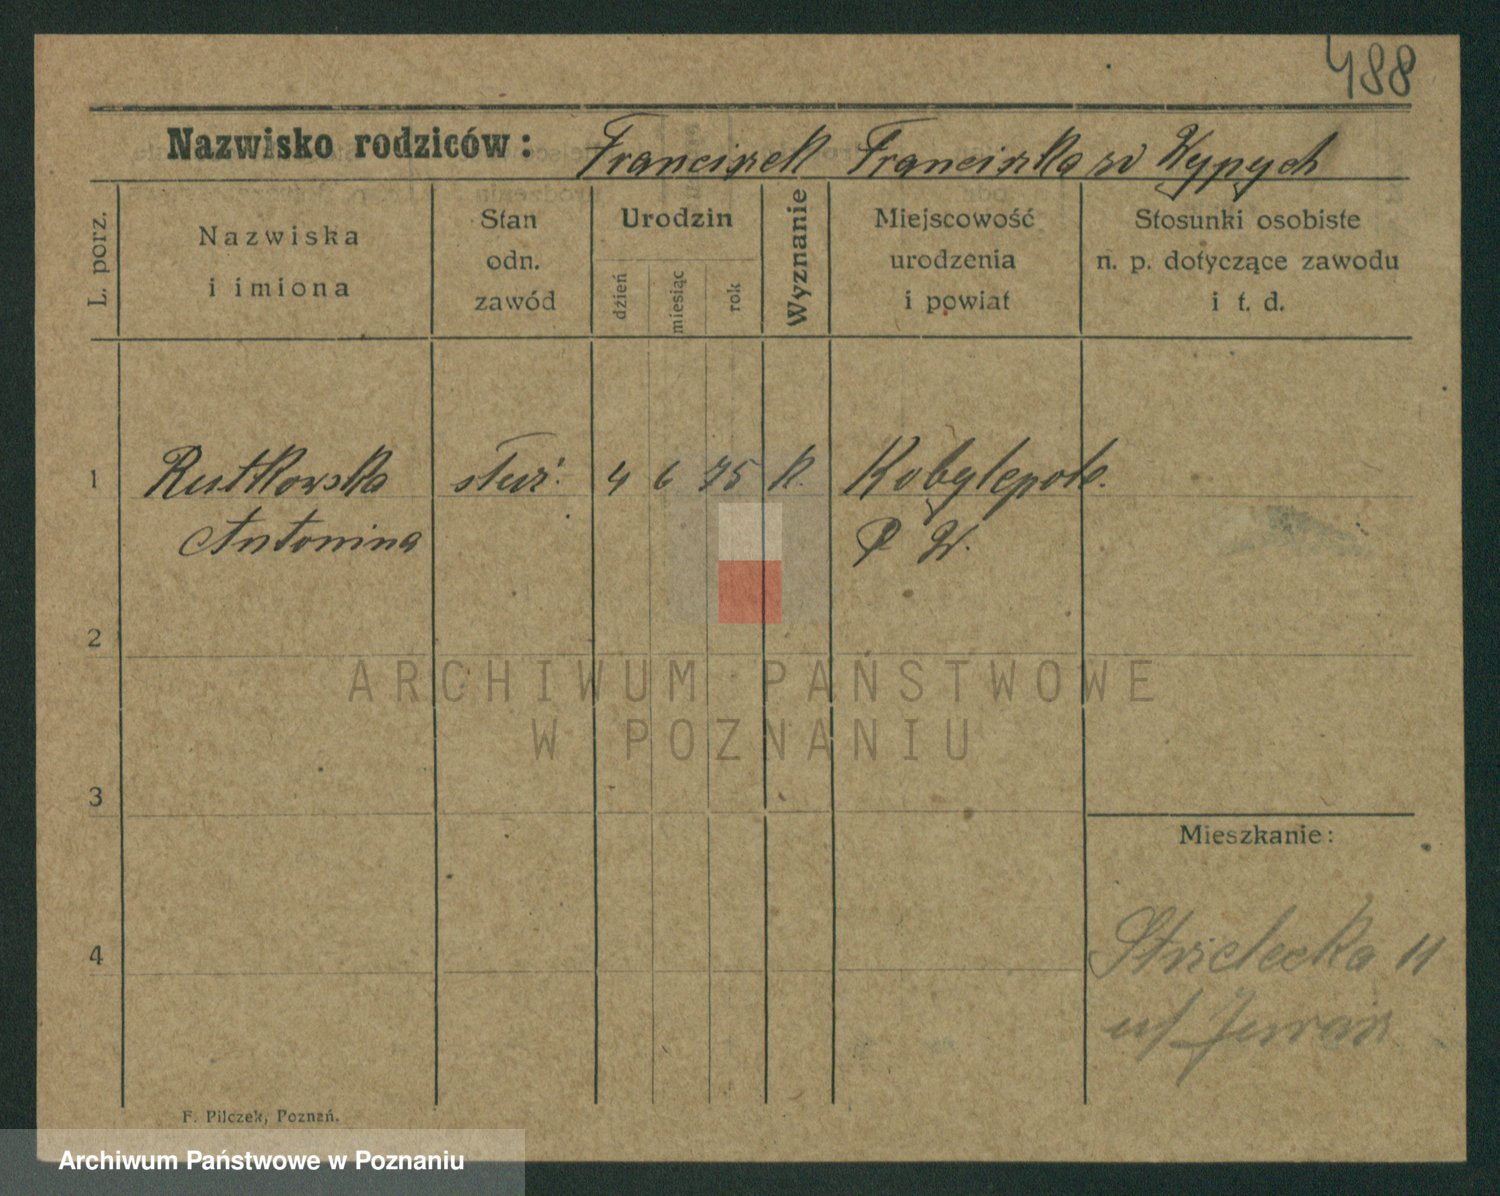 488
Nazwisko rodziców: Franciszek Franciszka zd Wypych
L. porz.
Nazwiska
i imiona
Stan
odn.
zawód
Urodzin
dzień
miesiąc
rok
Wyznanie
Miejscowość
urodzenia
i powiat
Stosunki osobiste
n. p. dotyczące zawodu
i t. d.
1 Rutkowska służ. 4 6 75 k. Kobylepole.
Antonina P W.
2
ARCHIWUM PAŃSTWOWE
W POZNANIU
3
Mieszkanie:
4 Strzelecka 11
u/
F. Pilczek, Poznań.
Archiwum Państwowe w Poznaniu